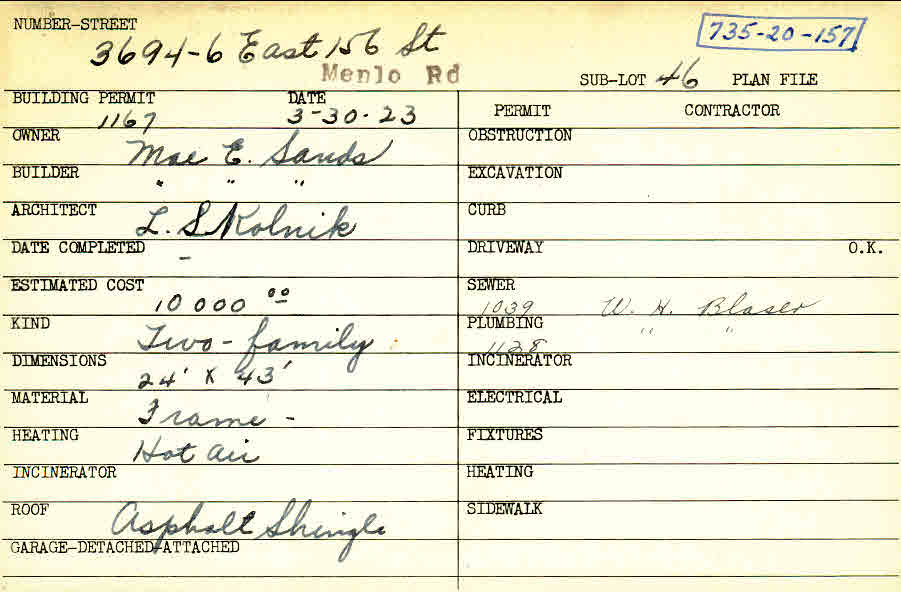 NUMBER-STREET
3694-6 East 156 St
735-20-157
Menlo Rd
SUB-LOT 46 PLAN FILE
BUILDING PERMIT DATE
1167 3-30-23
PERMIT CONTRACTOR
OWNER Mae E. Sands
OBSTRUCTION
BUILDER " " "
EXCAVATION
ARCHITECT L. S Kolnik
CURB
DATE COMPLETED -
DRIVEWAY O.K.
ESTIMATED COST 10 000 00
SEWER
1039 W. H. Blaser
KIND Two-family
PLUMBING " "
1128
DIMENSIONS 24' X 43'
INCINERATOR
MATERIAL Frame -
ELECTRICAL
HEATING Hot air
FIXTURES
INCINERATOR
HEATING
ROOF Asphalt Shingle
SIDEWALK
GARAGE-DETACHED-ATTACHED